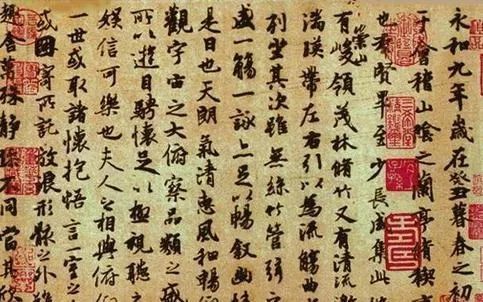 永和九年歲在癸丑暮春之初
于會稽山陰之蘭亭脩禊
也群賢畢至少長咸集此
崇山
有峻領茂林脩竹又有清流
湍暎帶左右引以為流觴曲
列坐其次雖無絲竹管弦
盛一觴一詠亦足以暢敘幽
是日也天朗氣清惠風和暢仰
觀宇宙之大俯察品類之盛
所以遊目騁懷足以極視聽之
娛信可樂也夫人之相與俯仰
一世或取諸懷抱悟言一室之
或因寄所託放浪形骸之外雖
趣舍萬殊靜躁不同當其欣